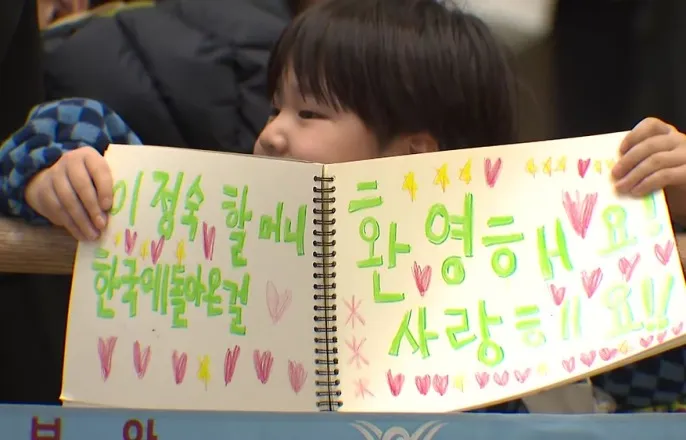 이정숙 할머니
한국에 돌아온 걸
환영해요!!
사랑해요!!
보안